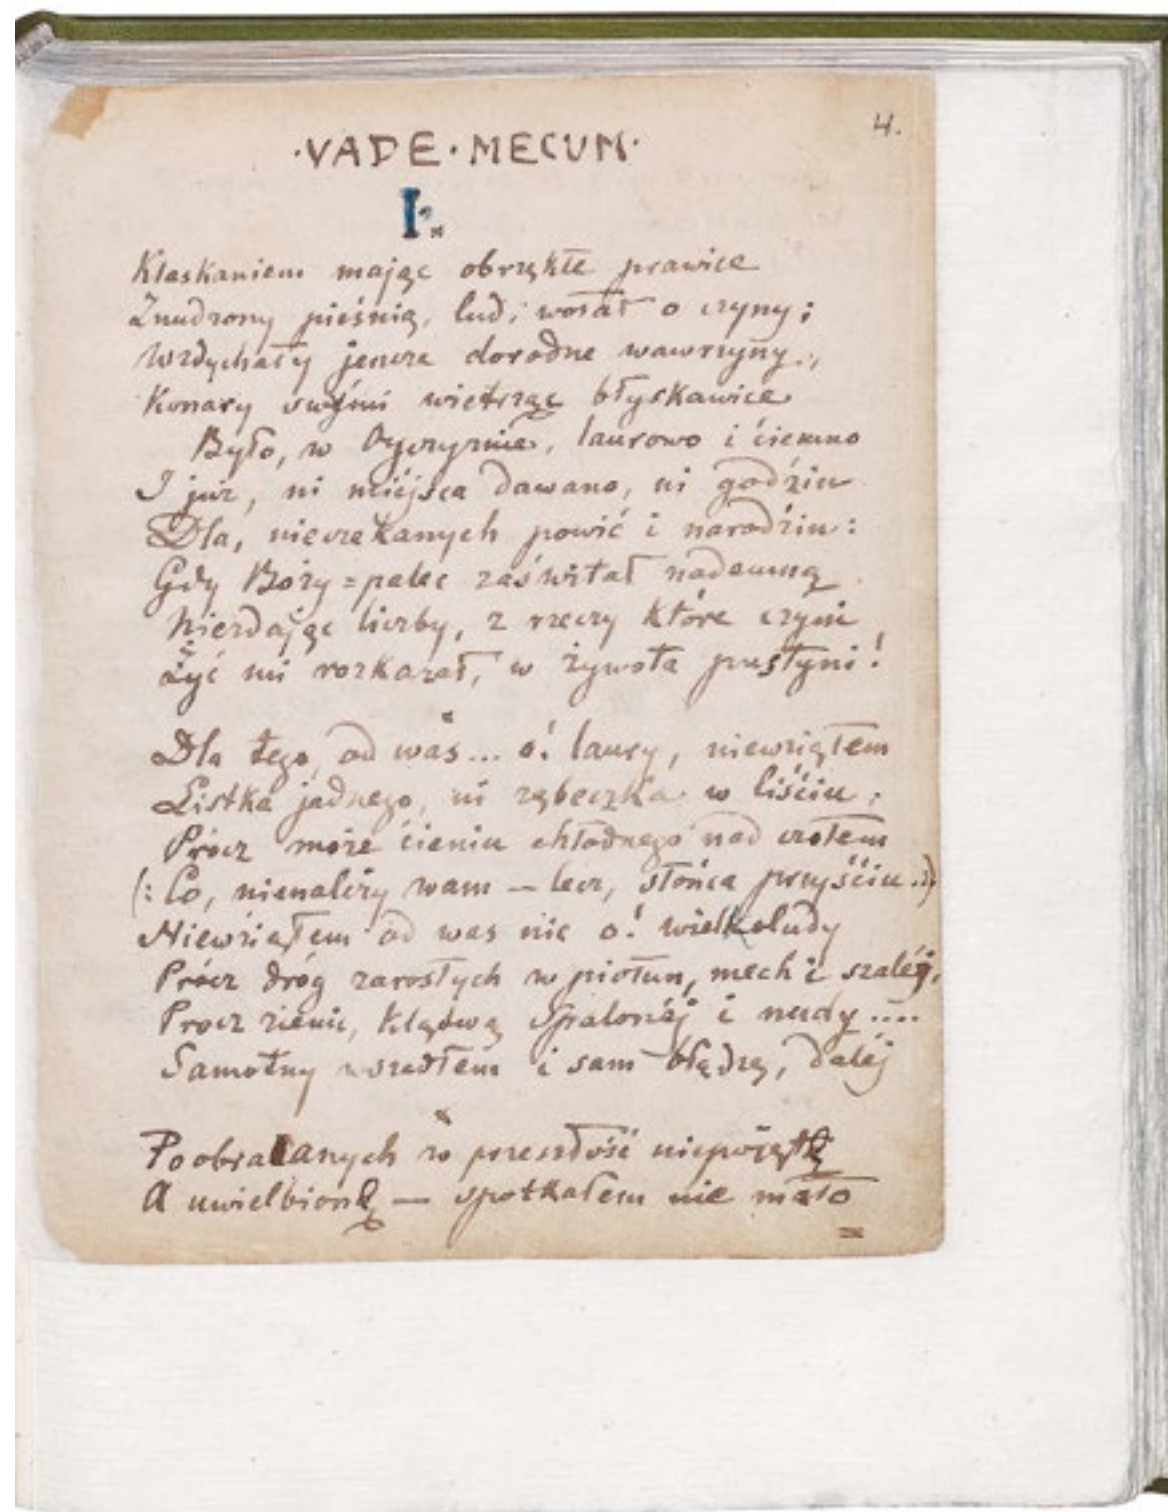 4.
·VADE·MECUM·
I.
Klaskaniem mając obrzękłe prawice
Znudzony pieśnią, lud, wołał o czyny;
Wzdychały jeszcze dorodne wawrzyny,
Konary swymi wietrząc błyskawice
Było, w Ojczyznie, laurowo i ciemno
I już, ni miéjsca dawano, ni godzin
Dla, nieczekanych powić i narodzin:
Gdy Boży=palec zaświtał nademną
Niezdając liczby, z rzeczy które czyni
Żyć mi rozkazał, w żywota pustyni!
Dla tego, od was... o! laury, niewziąłem
Listka jednego, ni ząbeczka w liściu,
Prócz może cieniu chłodnego nad czołem
(: Co, nienależy wam — lecz, słońca przyjściu..:)
Niewziąłem od was nic o! wielkoludy
Prócz dróg zarosłych w piołun, mech i szaléj,
Prócz ziemi, klątwą spalonéj i nudy....
Samotny wszedłem i sam błądzę, daléj
Poobracanych w przeszłość niepojętą
A uwielbioną — spotkałem nie mało
=